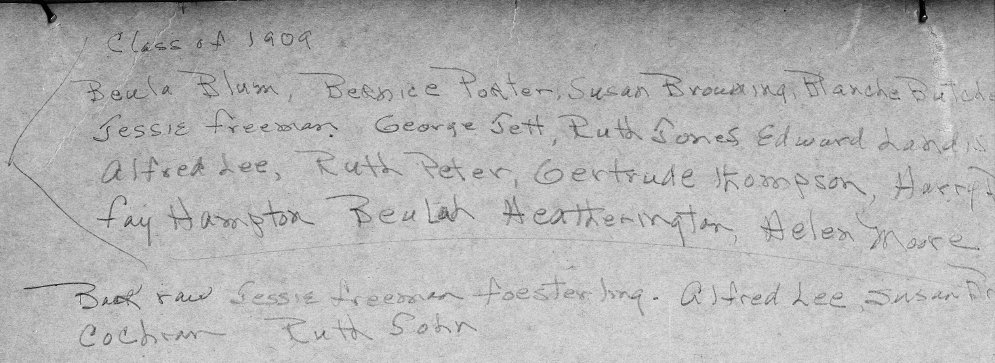 Class of 1909
Beula Blum, Bernice Porter, Susan Browning, Blanche Butche
Jessie freeman. George Jett, Ruth Jones Edward Landis
Alfred Lee, Ruth Peter, Gertrude Thompson, Harry
fay Hampton Beulah Heatherington, Helen Moore
Back row Jessie freeman foesterling. Alfred Lee, Susan Br
Cochran Ruth